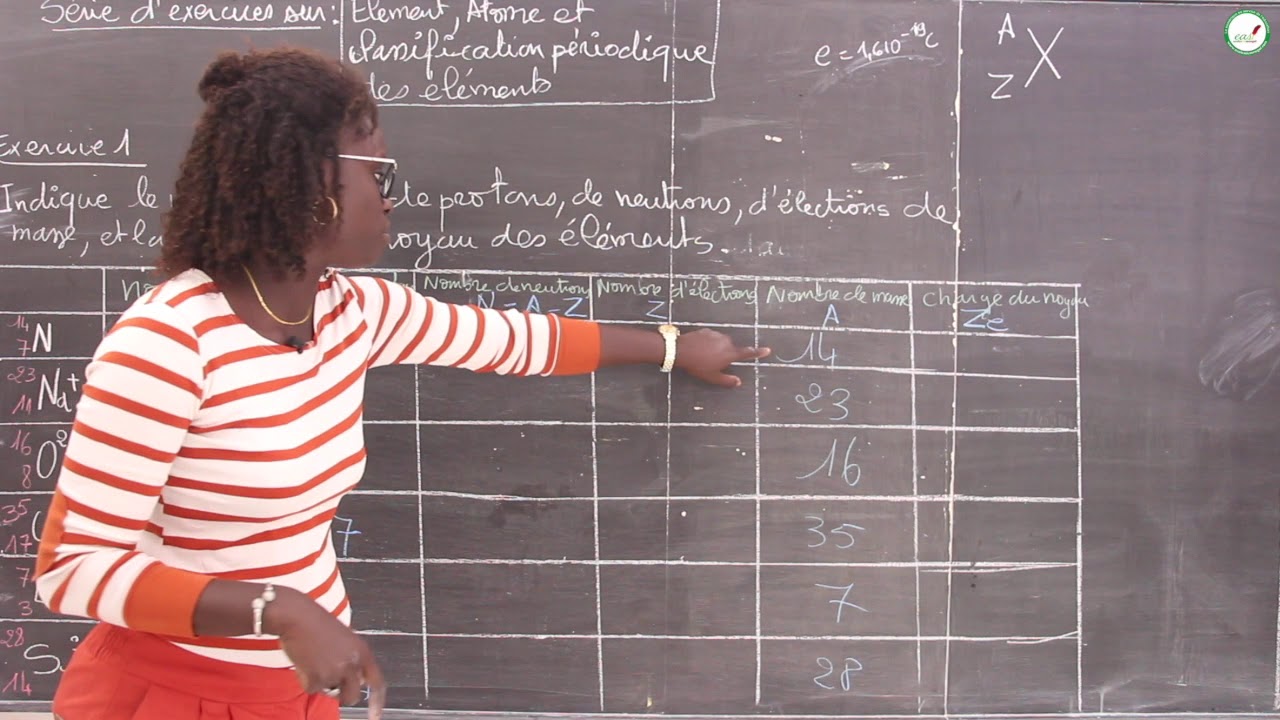 Série d'exercices sur: Element, Atome et
classification périodique
des eléments
e = 1,6 10⁻¹⁹ C
A
X
Z
eas!
Exercice 1
Indique le de protons, de neutrons, d'élections de
masse, et la noyau des éléments
Nombre de neutron Nombre d'élections Nombre de masse Charge du noyau
N = A - Z Z A Ze
14
7 N 14
23
11 Na+ 23
16
8 O2 16
35
17 7 35
7
3 7
28
14 Si 28